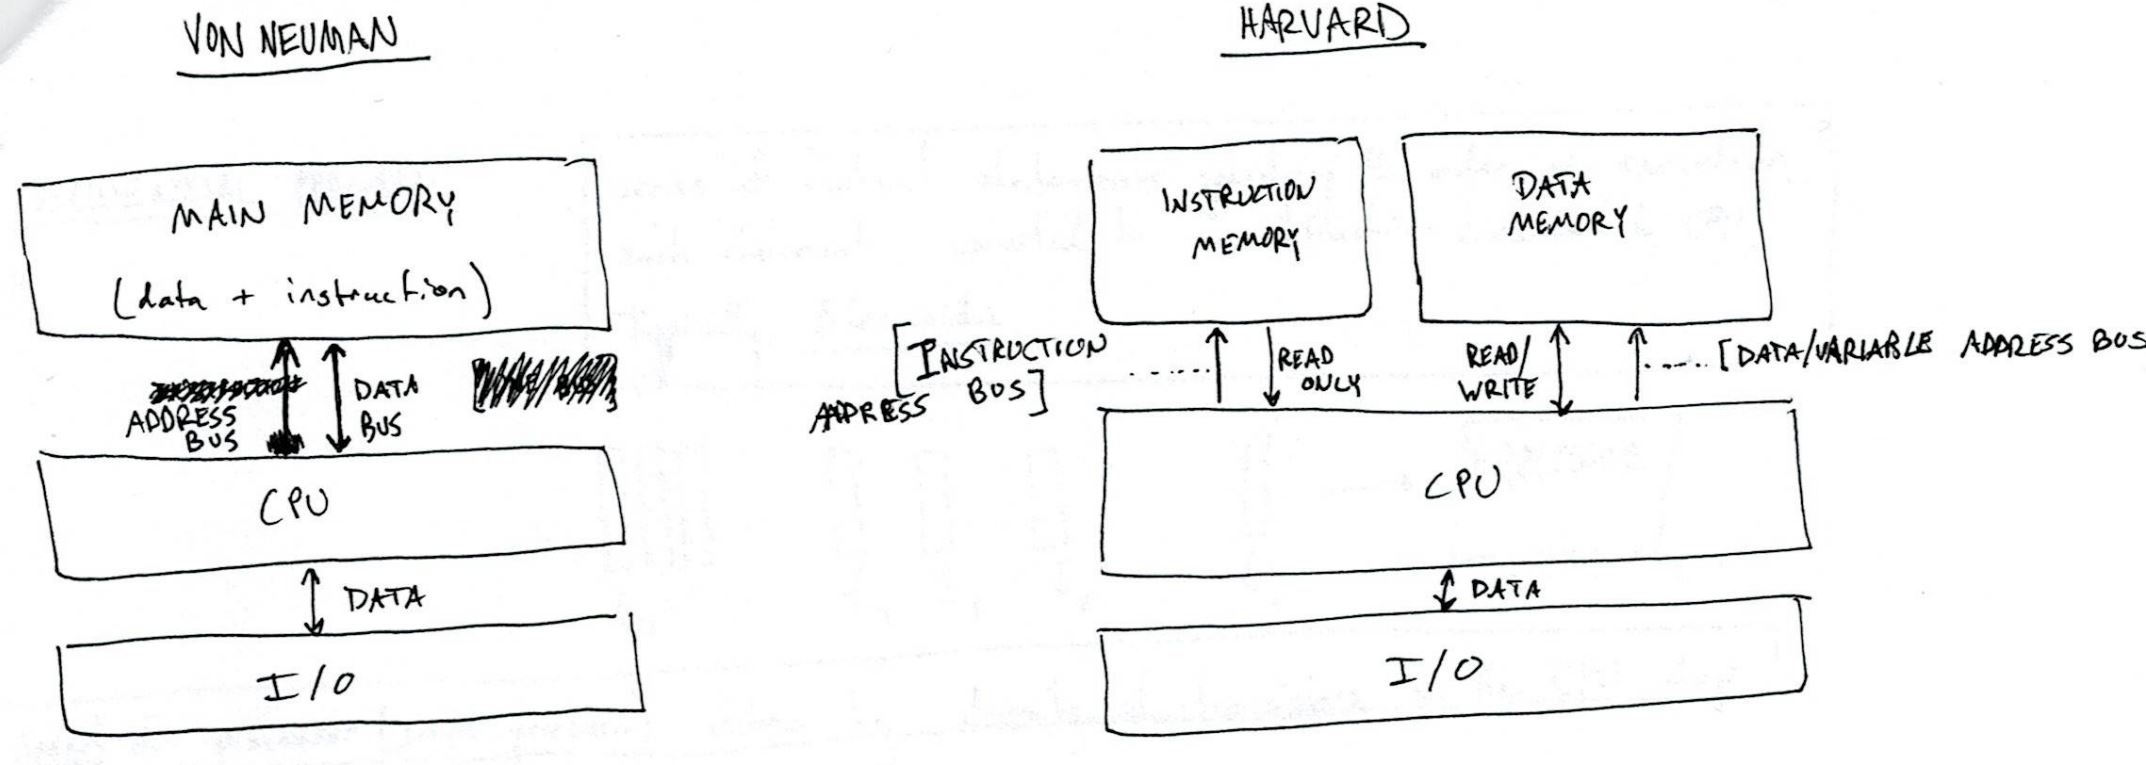 VON NEUMAN
MAIN MEMORY
(data + instruction)
ADDRESS
BUS
DATA
BUS
CPU
DATA
I/O
HARVARD
INSTRUCTION
MEMORY
DATA
MEMORY
[INSTRUCTION
ADDRESS BUS]
READ
ONLY
READ/
WRITE
[DATA/VARIABLE ADDRESS BUS
CPU
DATA
I/O